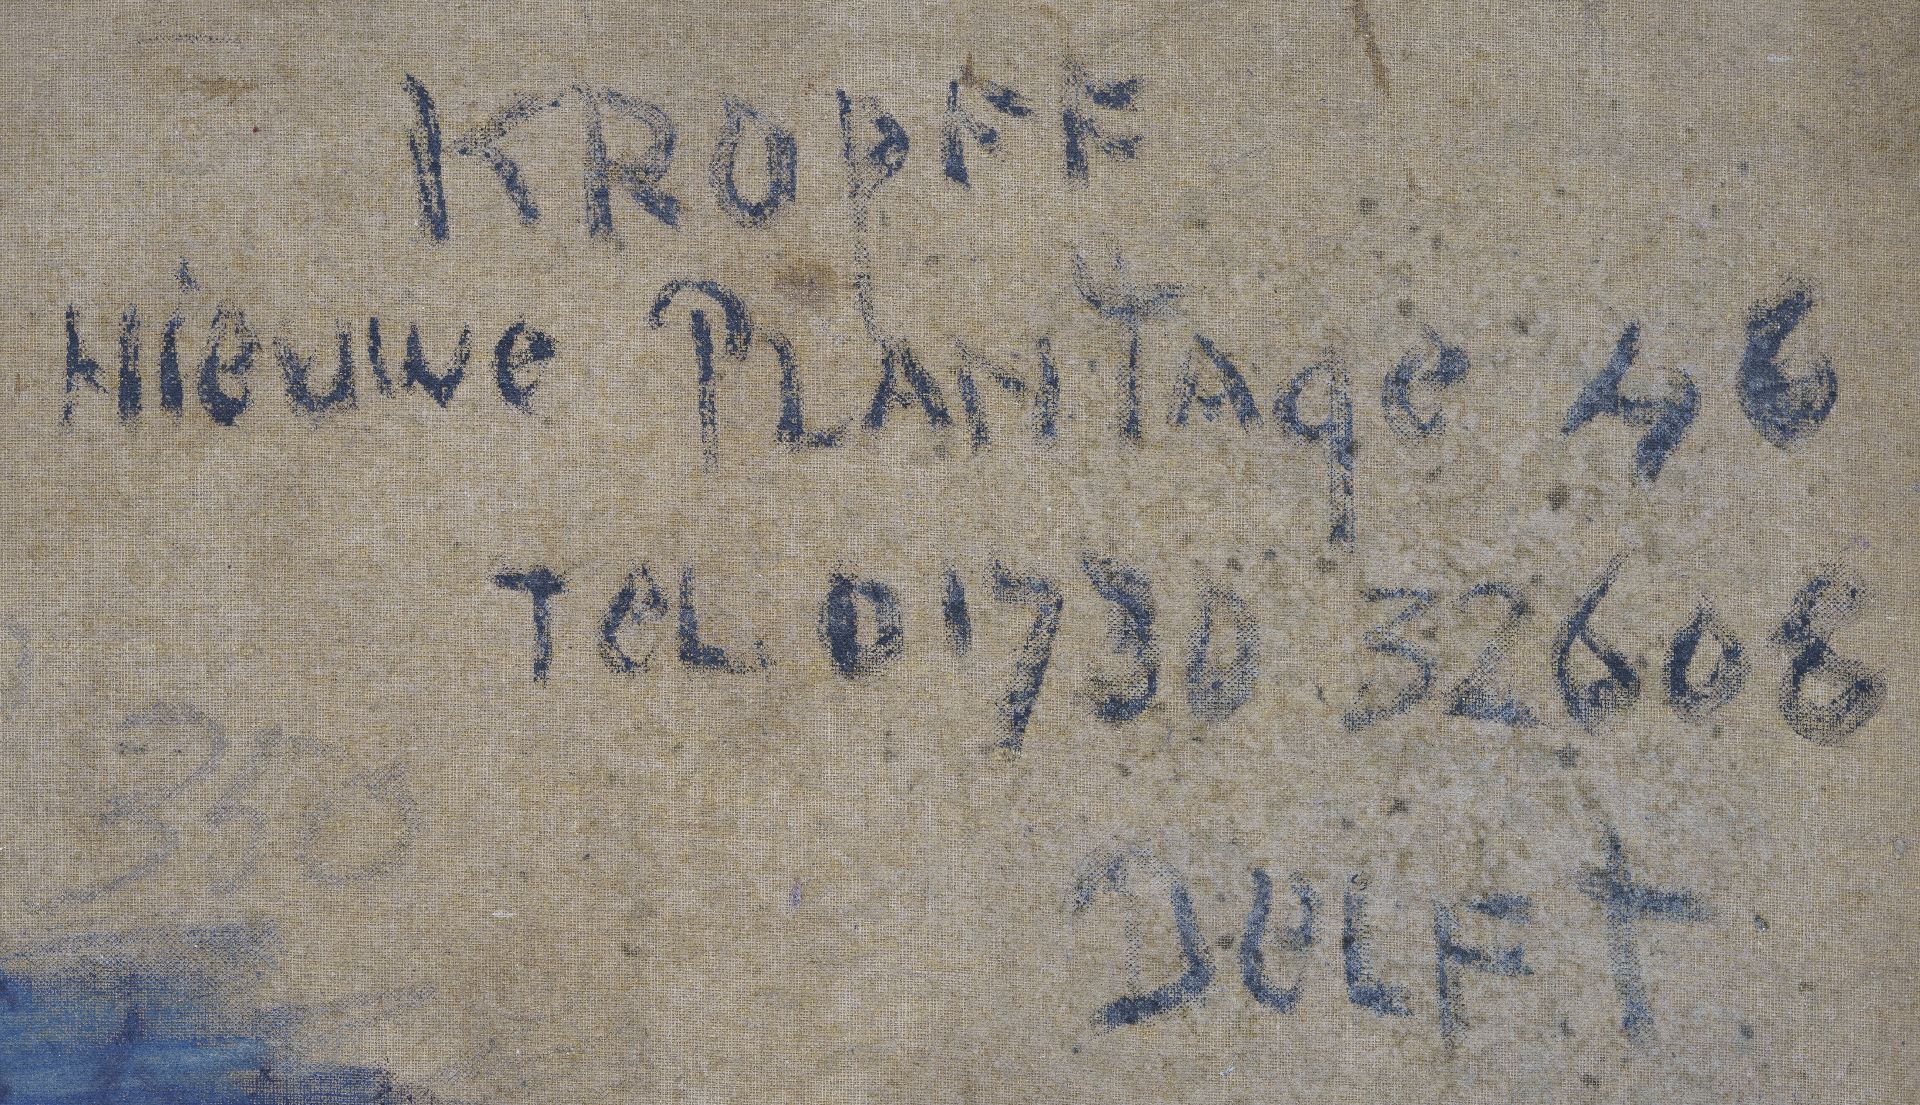 KROPFF
Nieuwe PLANTAge 46
TeL 01730 32608
350
DELFT